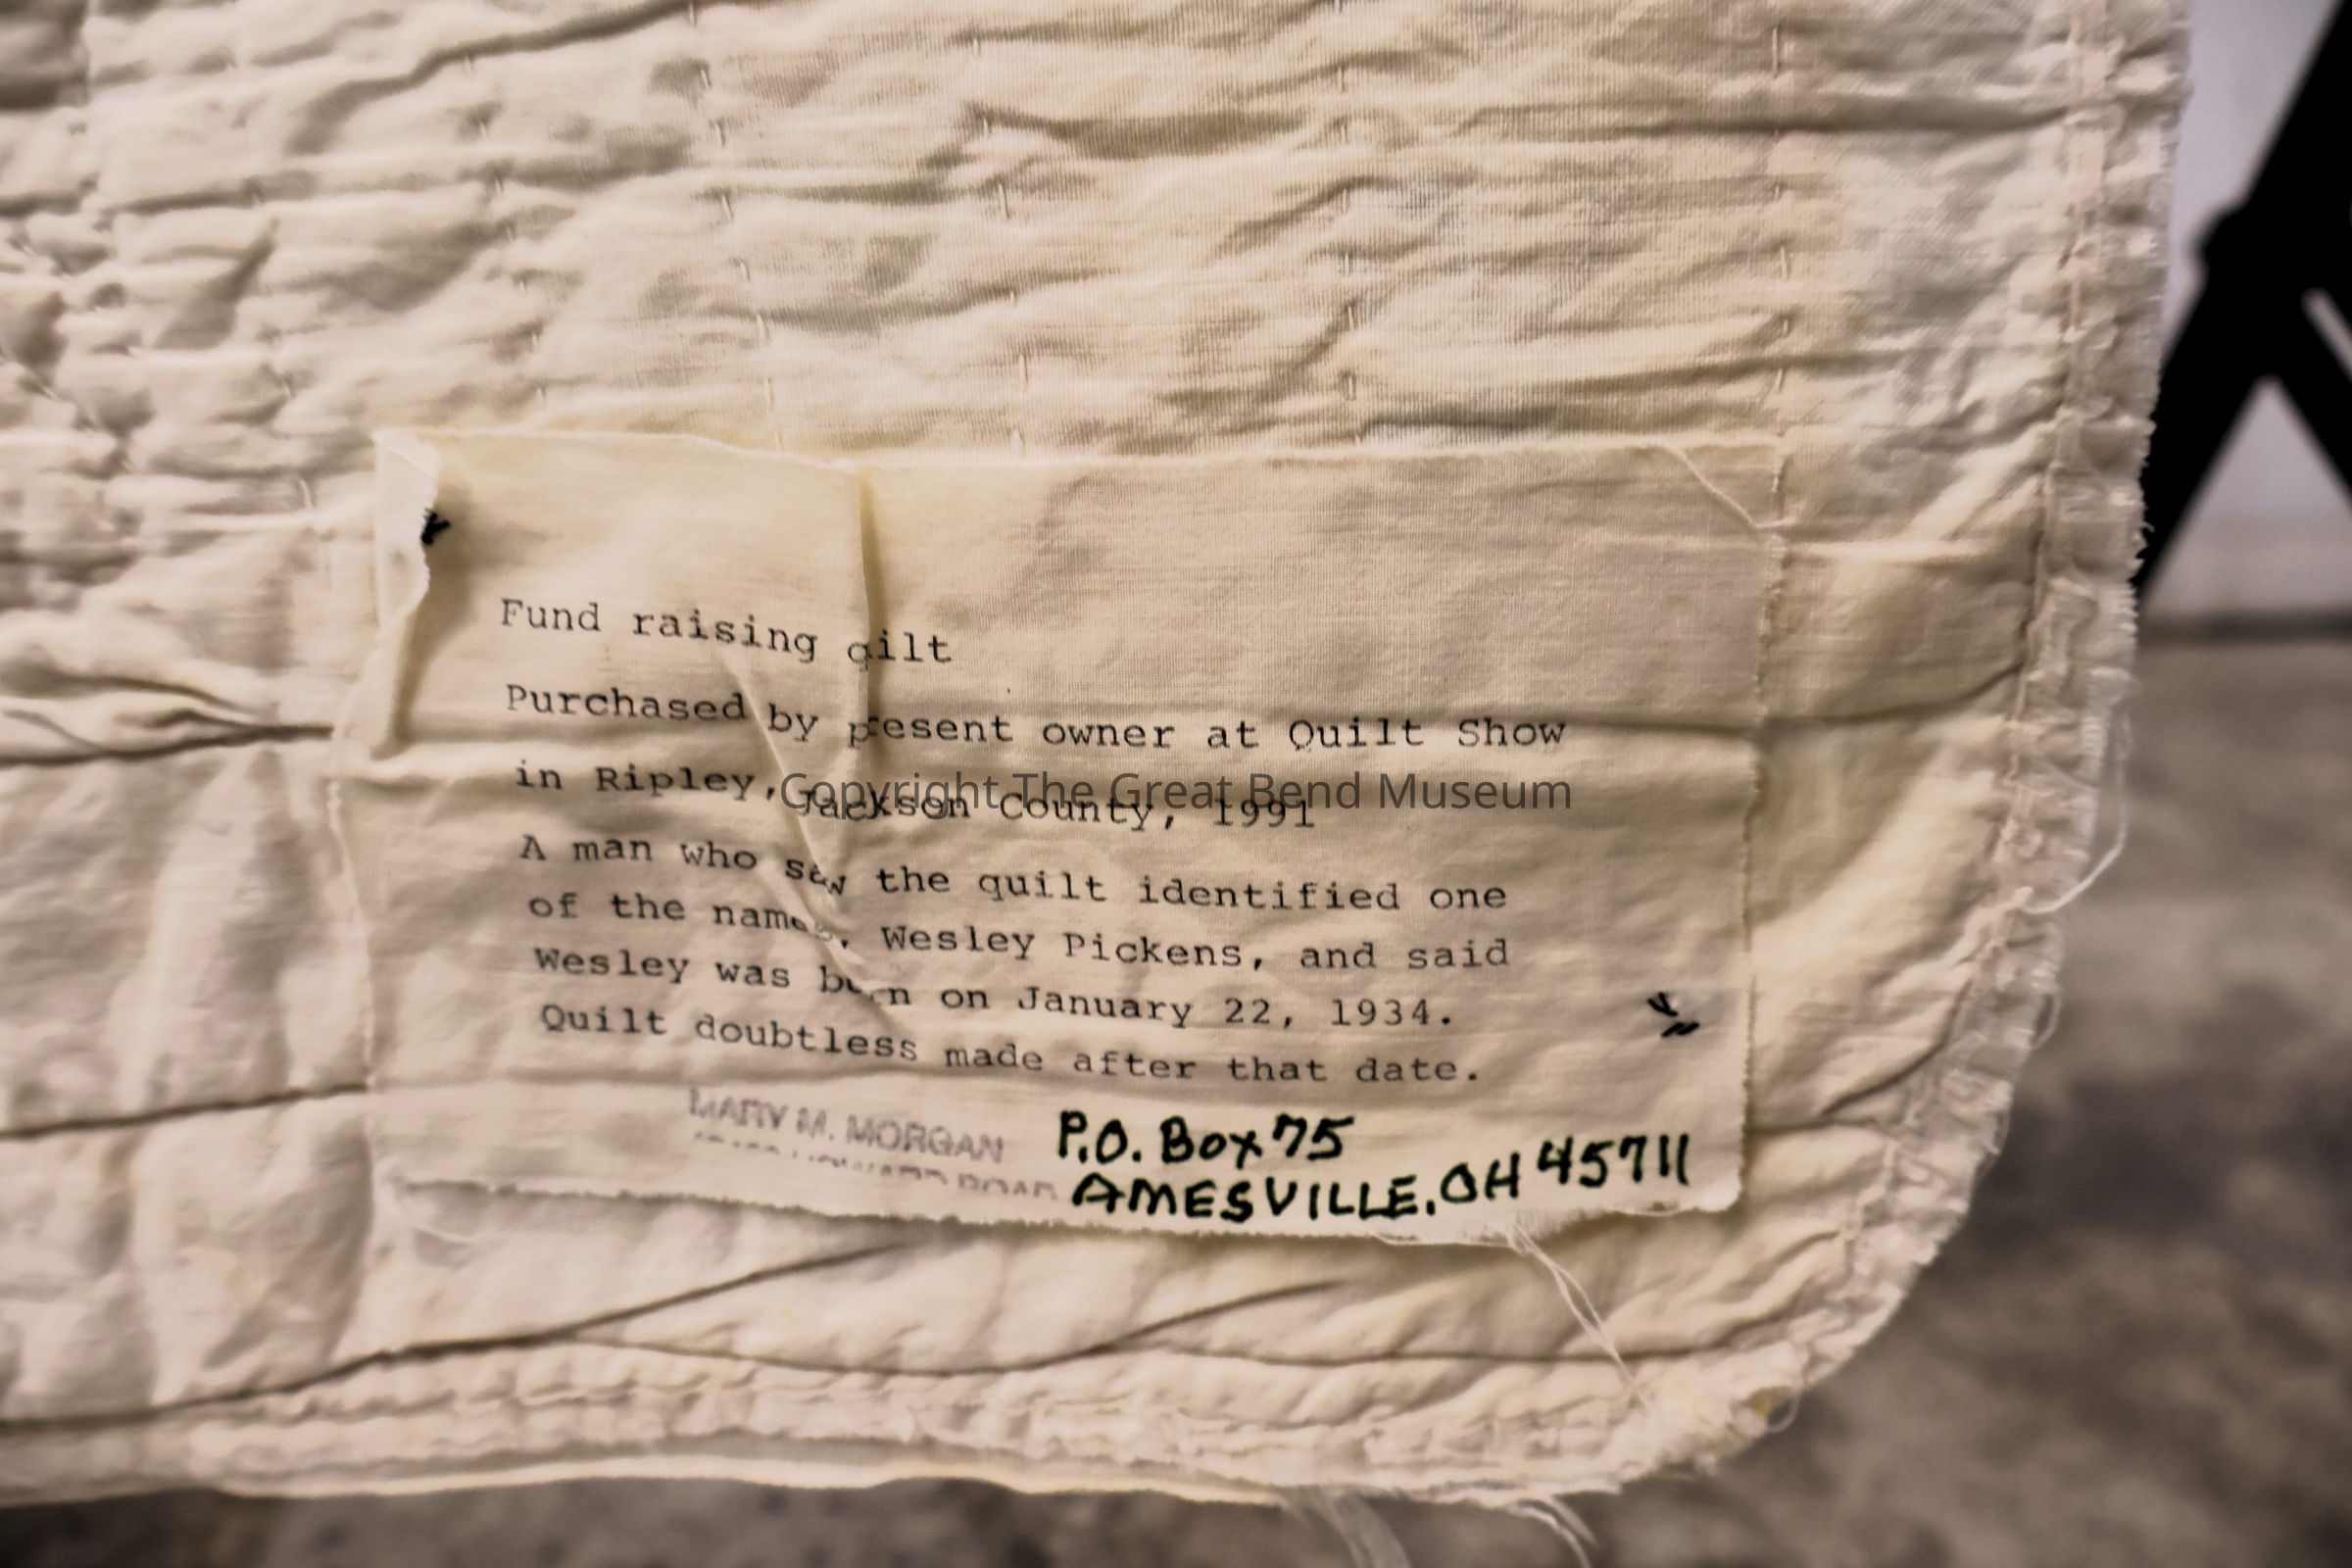 Fund raising qilt
Purchased by present owner at Quilt Show
in Ripley, Jackson County, 1991
A man who saw the quilt identified one
of the names, Wesley Pickens, and said
Wesley was born on January 22, 1934.
Quilt doubtless made after that date.
MARY M. MORGAN
HOWARD ROAD
P.O. Box 75
AMESVILLE, OH 45711
Copyright The Great Bend Museum